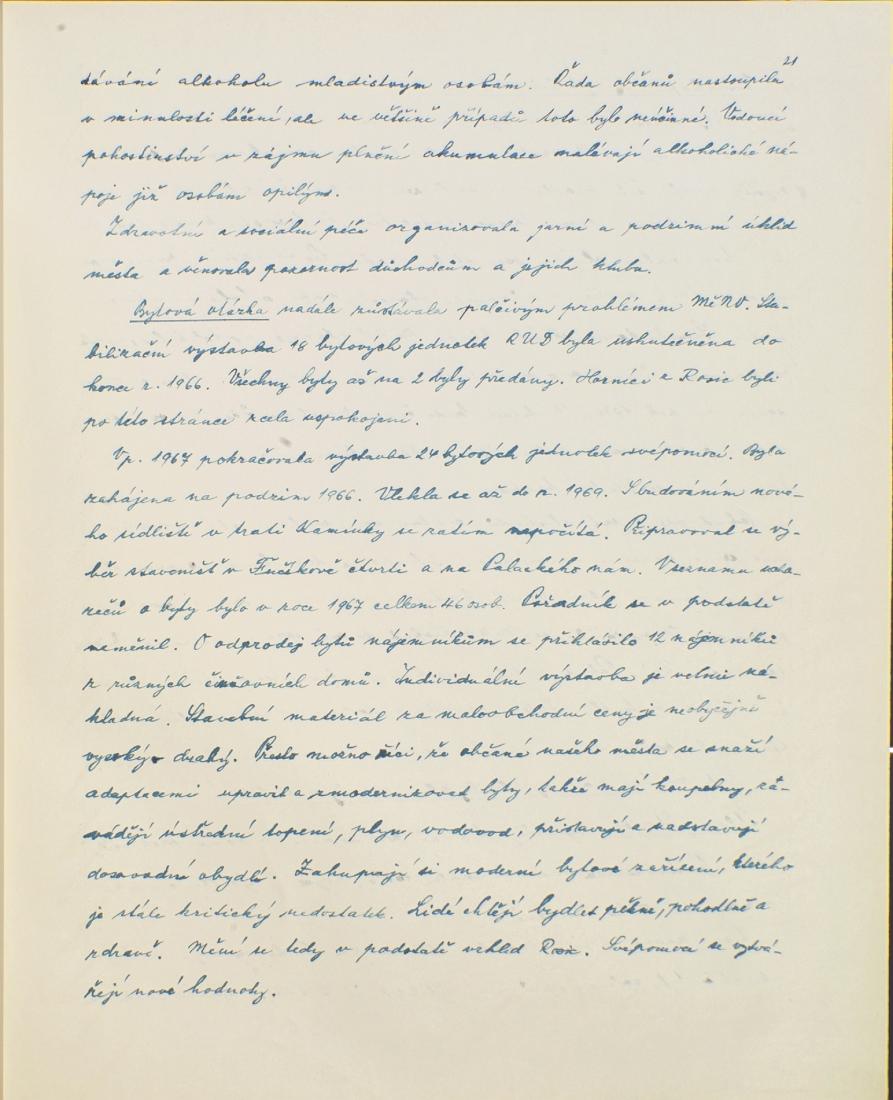 21
dávání alkoholu mladistvým osobám. Řada občanů nastoupila
v minulosti léčení, ale ve většině případů toto bylo neúčinné. Vedoucí
pohostinství v zájmu plnění akumulace nalévají alkoholické ná-
poje již osobám opilým.
Zdravotní a sociální péče organizovala jarní a podzimní úklid
města a věnovala pozornost důchodcům a jejich klubu.
Bytová otázka nadále zůstávala palčivým problémem MěNV. Sta-
bilizační výstavba 18 bytových jednotek RUD byla uskutečněna do
konce r. 1966. Všechny byty až na 2 byly předány. Horníci z Rosic byli
po této stránce zcela uspokojeni.
V r. 1967 pokračovala výstavba 24 bytových jednotek svépomocí. Byla
zahájena na podzim 1966. Vlekla se až do r. 1969. S budováním nové-
ho sídliště v trati Kamínky se zatím nepočítá. Připravoval se vý-
běr stavenišť v Fučíkově čtvrti a na Palackého nám. V seznamu ucha-
zečů o byty bylo v roce 1967 celkem 46 osob. Pořadník se v podstatě
neměnil. O odprodej bytů nájemníkům se přihlásilo 12 nájemníků
z různých činžovních domů. Individuální výstavba je velmi ná-
kladná. Stavební materiál za maloobchodní ceny je neobyčejně
vysoký drahý. Přesto možno říci, že občané našeho města se snaží
adaptacemi upravit a zmodernizovat byty, takže mají koupelny, za-
vádějí ústřední topení, plyn, vodovod, přistavují a nadstavují
dosavadní obydlí. Zakupují si moderní bytové zařízení, kterého
je stále kritický nedostatek. Lidé chtějí bydlet pěkně, pohodlně a
zdravě. Mění se tedy v podstatě vzhled Rosic. Svépomocí se vytvá-
řejí nové hodnoty.